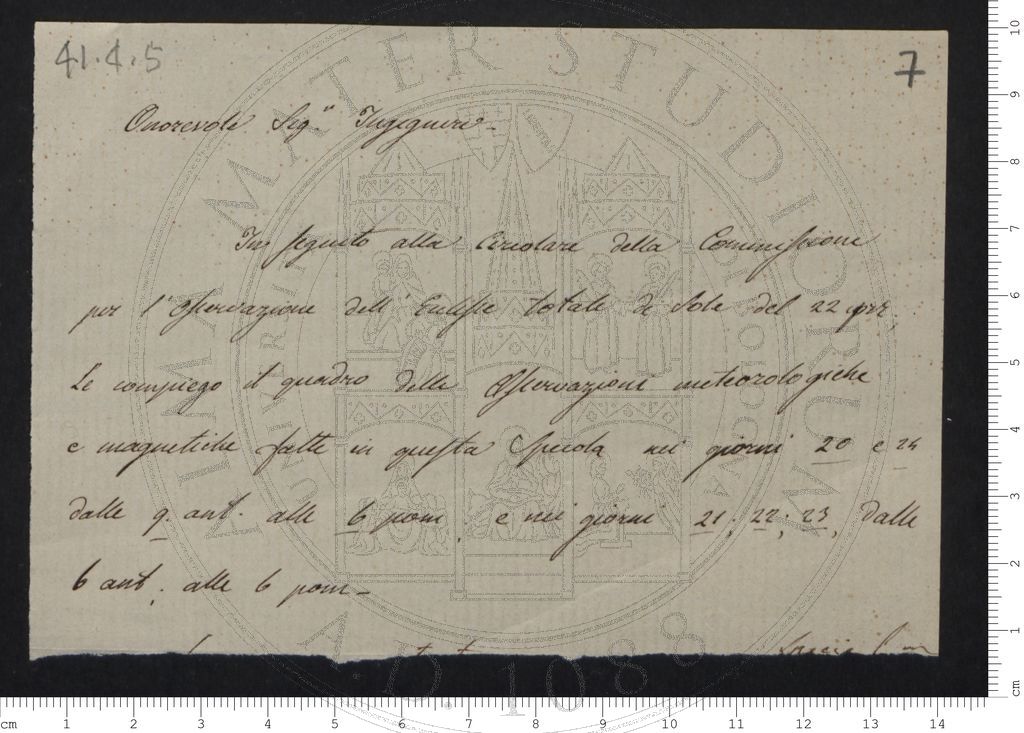 41.4.5
7
Onorevole Sigr Ingegnere -
In seguito alla Circolare della Commissione
per l'osservazione dell'Eclisse totale di Sole del 22 corr.
Le compiego il quadro delle Osservazioni meteorologiche
e magnetiche fatte in questa Specola nei giorni 20 e 24
dalle 9. ant. alle 6 pom, e nei giorni 21, 22, 23, dalle
6 ant. alle 6 pom -
ALMA MATER STUDIORUM
A.D. 1088
cm 1 2 3 4 5 6 7 8 9 10 11 12 13 14
cm 1 2 3 4 5 6 7 8 9 10